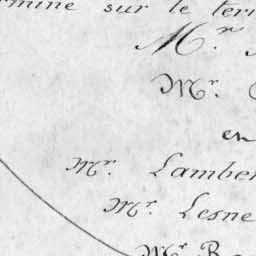 rmine sur le ter
Mr.
Mr.
en
Mr. Lamber
Mr. Lesne
Mr B